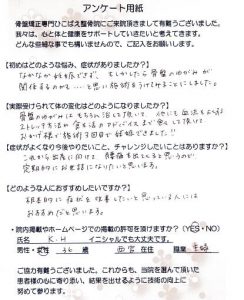 アンケート用紙
骨盤矯正専門ひこばえ整骨院にご来院頂きまして有難うございました。
我々は、心と体と健康をサポートしていきたいと考えてきます。
どんな些細な事でも構いませんので、ご記入をお願いします。
【初めはどのような悩み、症状がありましたか？】
なかなか妊娠できず、もしかしたら骨盤のゆがみが
関係するのでは…と思い施術をうけてみることにしました。
【実際受けられて体の変化はどのようになりましたか？】
骨盤のゆがみはもちろん治して頂いて、他にも血流をよくする
ストレッチ方法や食生活のアドバイスまで教えて頂いて
おかげ様で施術3回目で妊娠できました!!
【症状がよくなり今後やりたいこと、チャレンジしたいことはありますか？】
これから出産に向けて腰痛も出てくると思うので、
定期的にお世話になりたいと思います。
【どのような人におすすめしたいですか？】
根本的に症状を改善したいと思っている人には
おすすめだと思います。
・院内掲載やホームページでの掲載の許可を頂けますか？（YES・NO）
氏名 K.H イニシャルでも大丈夫です。
男性・女性 36歳 西宮在住 職業 主婦
ご協力有難うございました。これからも、当院を選んで頂いた
患者様の心に寄り添い、結果を出せるように技術の向上に
努めて参ります。